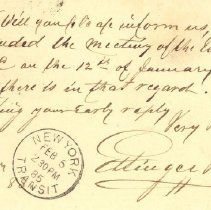 Will you please inform us,
nded the meeting of the
on the 12th of January
there is in that regard.
ing your early reply
Very
NEW YORK
FEB 5
2 30 PM
85
TRANSIT